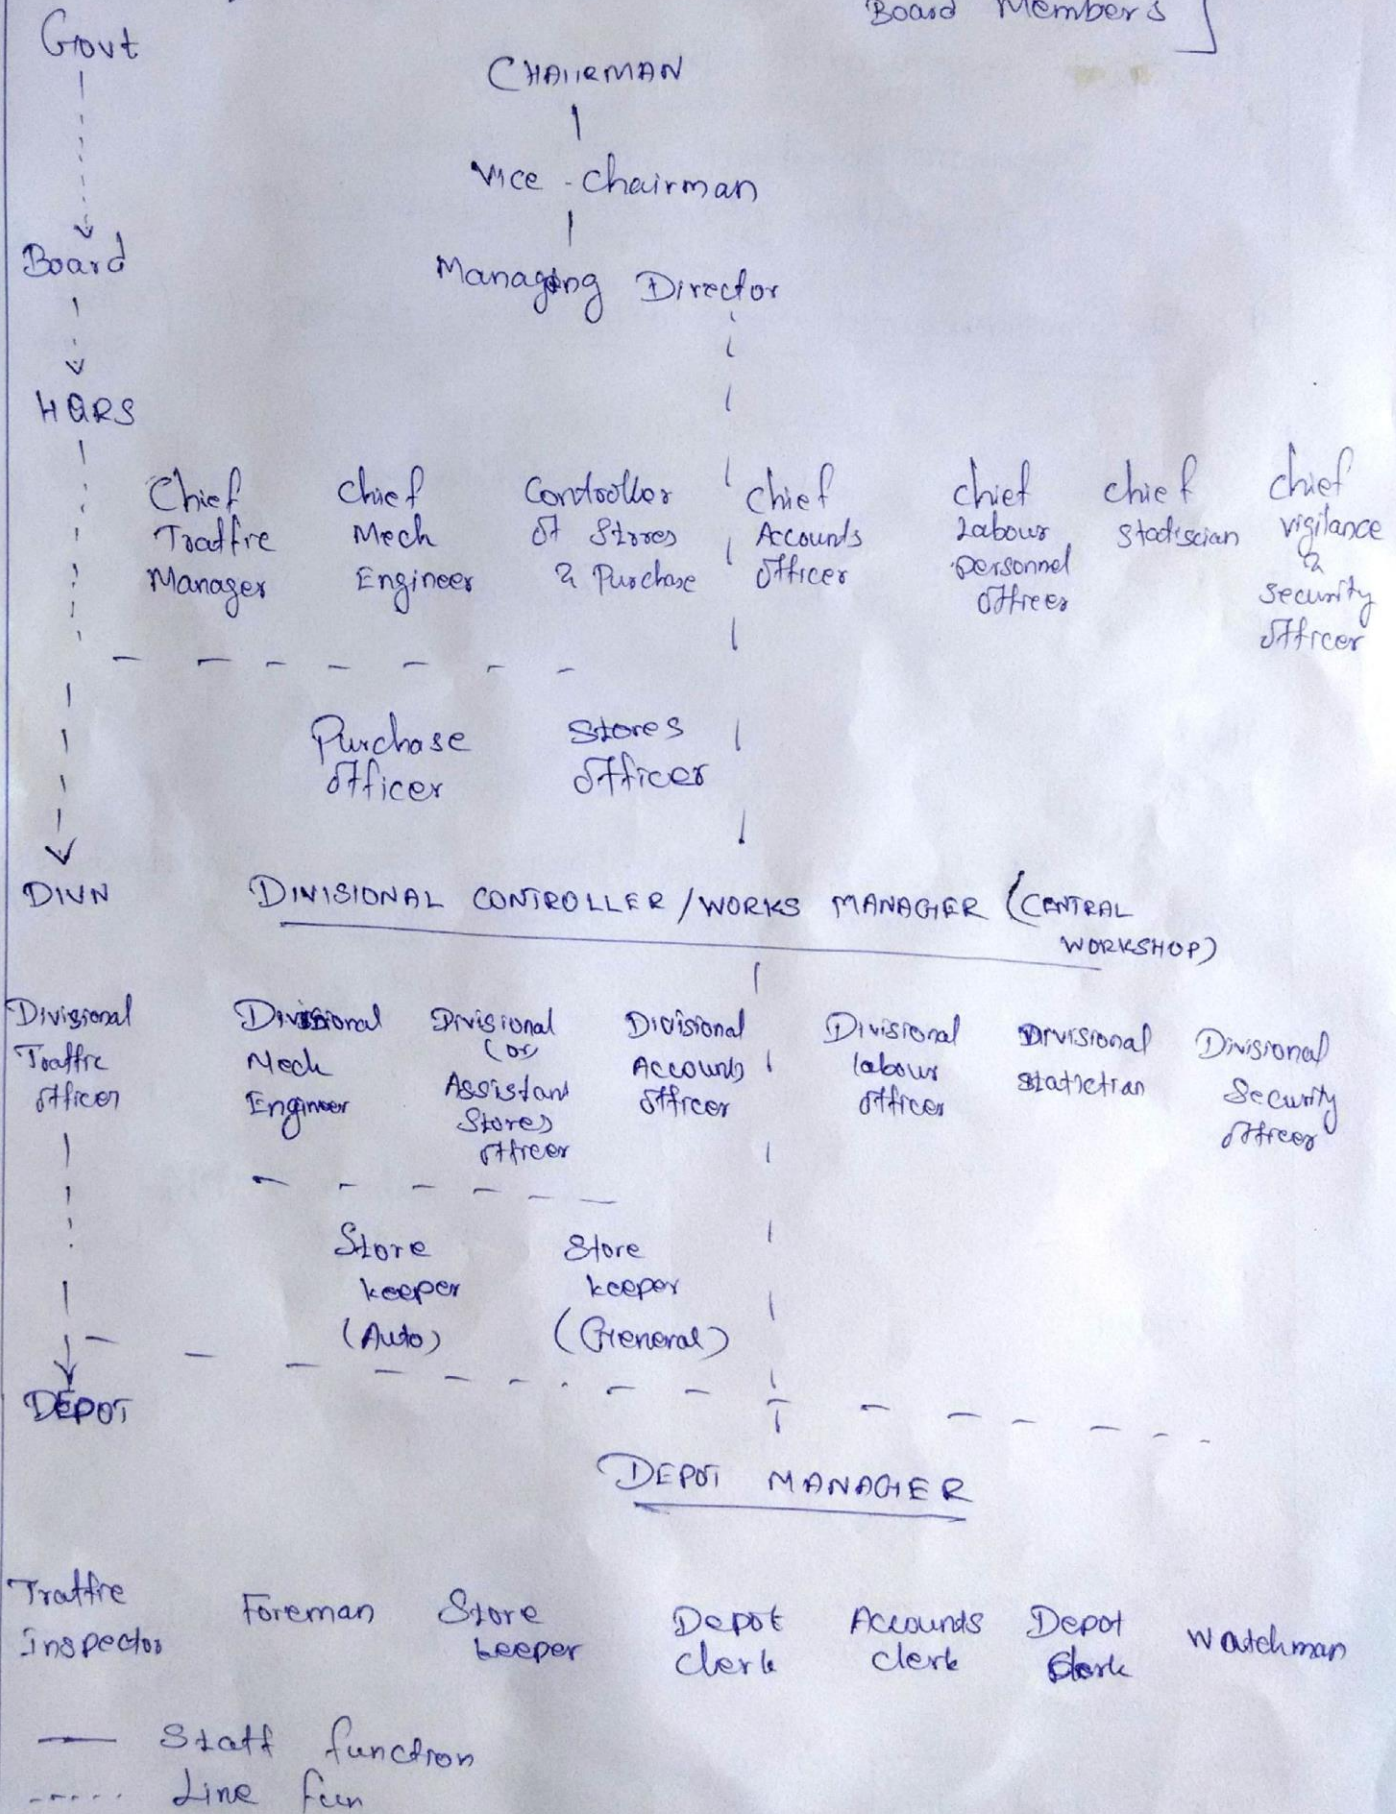 Board Members
Govt
CHAIRMAN
Vice - Chairman
Board
Managing Director
HQRS
Chief Traffic Manager
Chief Mech Engineer
Controller of Stores & Purchase
Chief Accounts Officer
Chief Labour personnel officer
Chief Stadiscian
Chief vigilance & security officer
Purchase officer
Stores officer
DIVN
DIVISIONAL CONTROLLER / WORKS MANAGER (CENTRAL
WORKSHOP)
Divisional Traffic officer
Divisional Mech Engineer
Divisional (or) Assistant Stores officer
Divisional Accounts officer
Divisional labour officer
Divisional statictian
Divisional Security officer
Store keeper (Auto)
Store keeper (General)
DEPOT
DEPOT MANAGER
Traffic Inspector
Foreman
Store keeper
Depot clerk
Accounts clerk
Depot clerk
Watchman
Staff function
Line fun